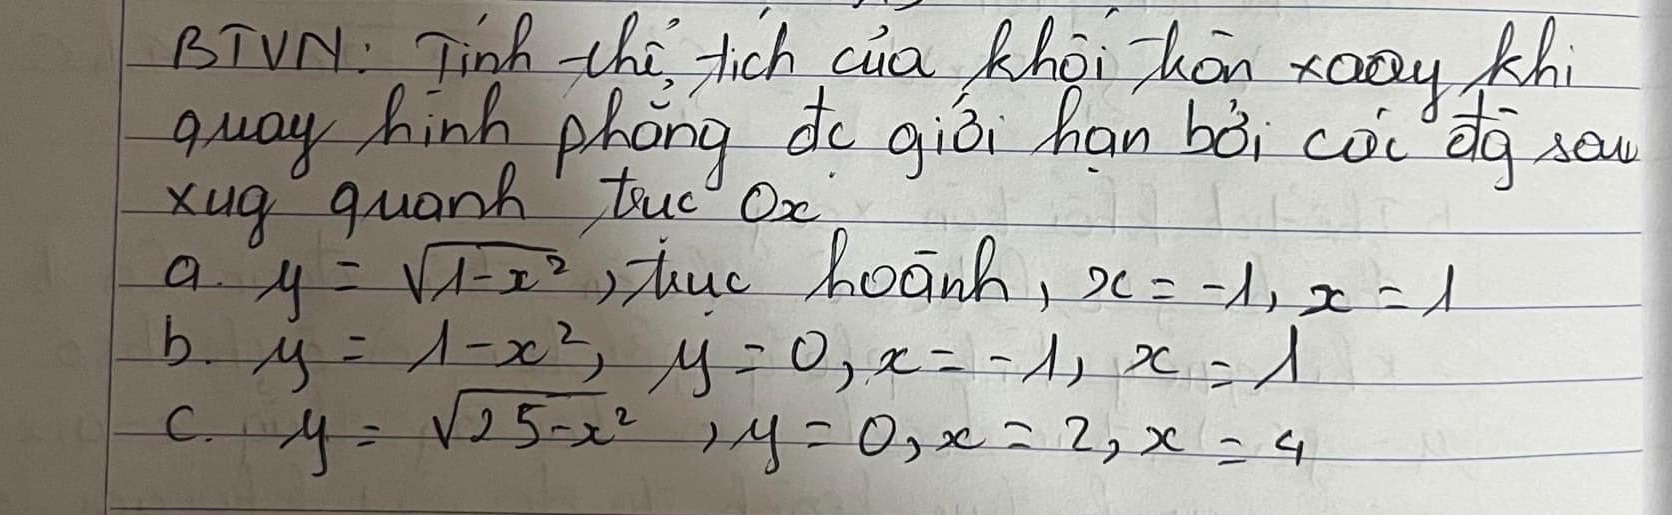 BTVN: Tính thể tích của khối tròn xoay khi
quay hình phẳng đc giới hạn bởi các đg sau
xug quanh trục Ox
a. y = √1-x², trục hoành, x = -1, x = 1
b. y = 1-x², y = 0, x = -1, x = 1
c. y = √25-x², y = 0, x = 2, x = 4